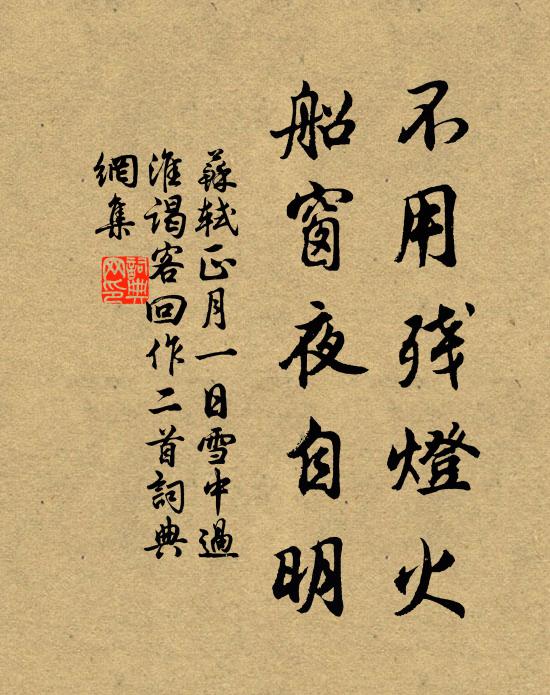 不用残燈火
船窗夜自明
蘇軾正月一日雪中過
淮謁客回作二首詞典
網集
詞典
网印